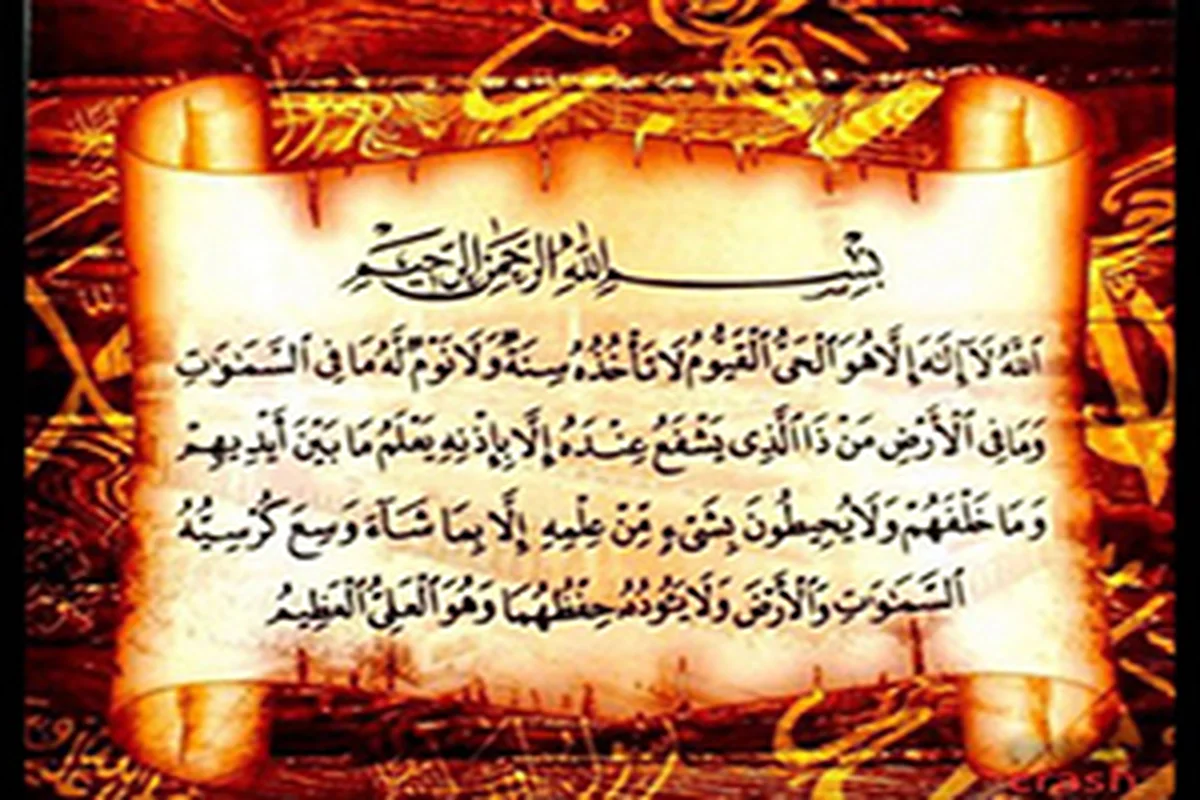 بِسْمِ اللَّهِ الرَّحْمَٰنِ الرَّحِيمِ
ٱللَّهُ لَآ إِلَٰهَ إِلَّا هُوَ ٱلْحَىُّ ٱلْقَيُّومُ لَا تَأْخُذُهُۥ سِنَةٌ وَلَا نَوْمٌ لَّهُۥ مَا فِى ٱلسَّمَٰوَٰتِ
وَمَا فِى ٱلْأَرْضِ مَن ذَا ٱلَّذِى يَشْفَعُ عِندَهُۥٓ إِلَّا بِإِذْنِهِۦ يَعْلَمُ مَا بَيْنَ أَيْدِيهِمْ
وَمَا خَلْفَهُمْ وَلَا يُحِيطُونَ بِشَىْءٍ مِّنْ عِلْمِهِۦٓ إِلَّا بِمَا شَآءَ وَسِعَ كُرْسِيُّهُ
ٱلسَّمَٰوَٰتِ وَٱلْأَرْضَ وَلَا يَـُٔودُهُۥ حِفْظُهُمَا وَهُوَ ٱلْعَلِىُّ ٱلْعَظِيمُ